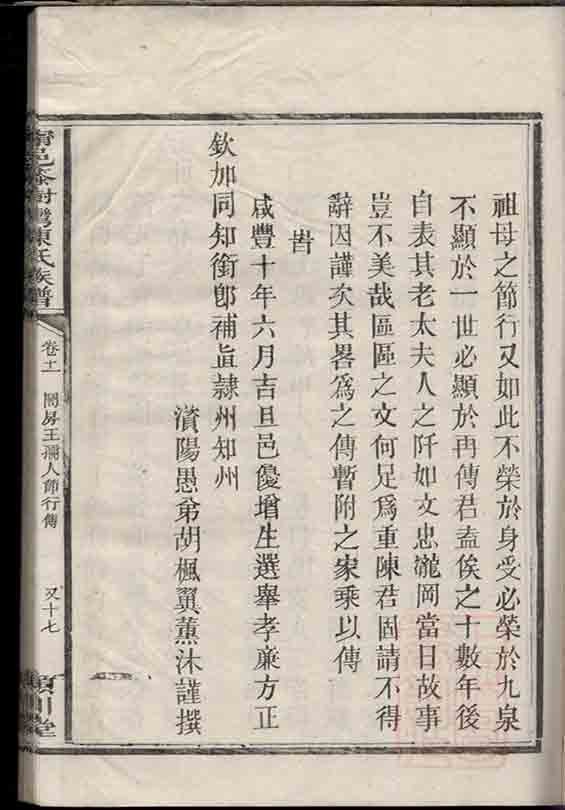 祖母之節行又如此不榮於身受必榮於九泉
不顯於一世必顯於再傳君盍俟之十數年後
自表其老太夫人之阡如文忠瀧岡當日故事
豈不美哉區區之文何足爲重陳君固請不得
辭因謹次其畧爲之傳暫附之家乘以傳
旹
咸豐十年六月吉旦邑優增生選舉孝廉方正
欽加同知銜卽補直隸州知州
濱陽愚弟胡楓翼薰沐謹撰
陳氏族譜
卷十一
王孺人節行傳
又十七
川堂